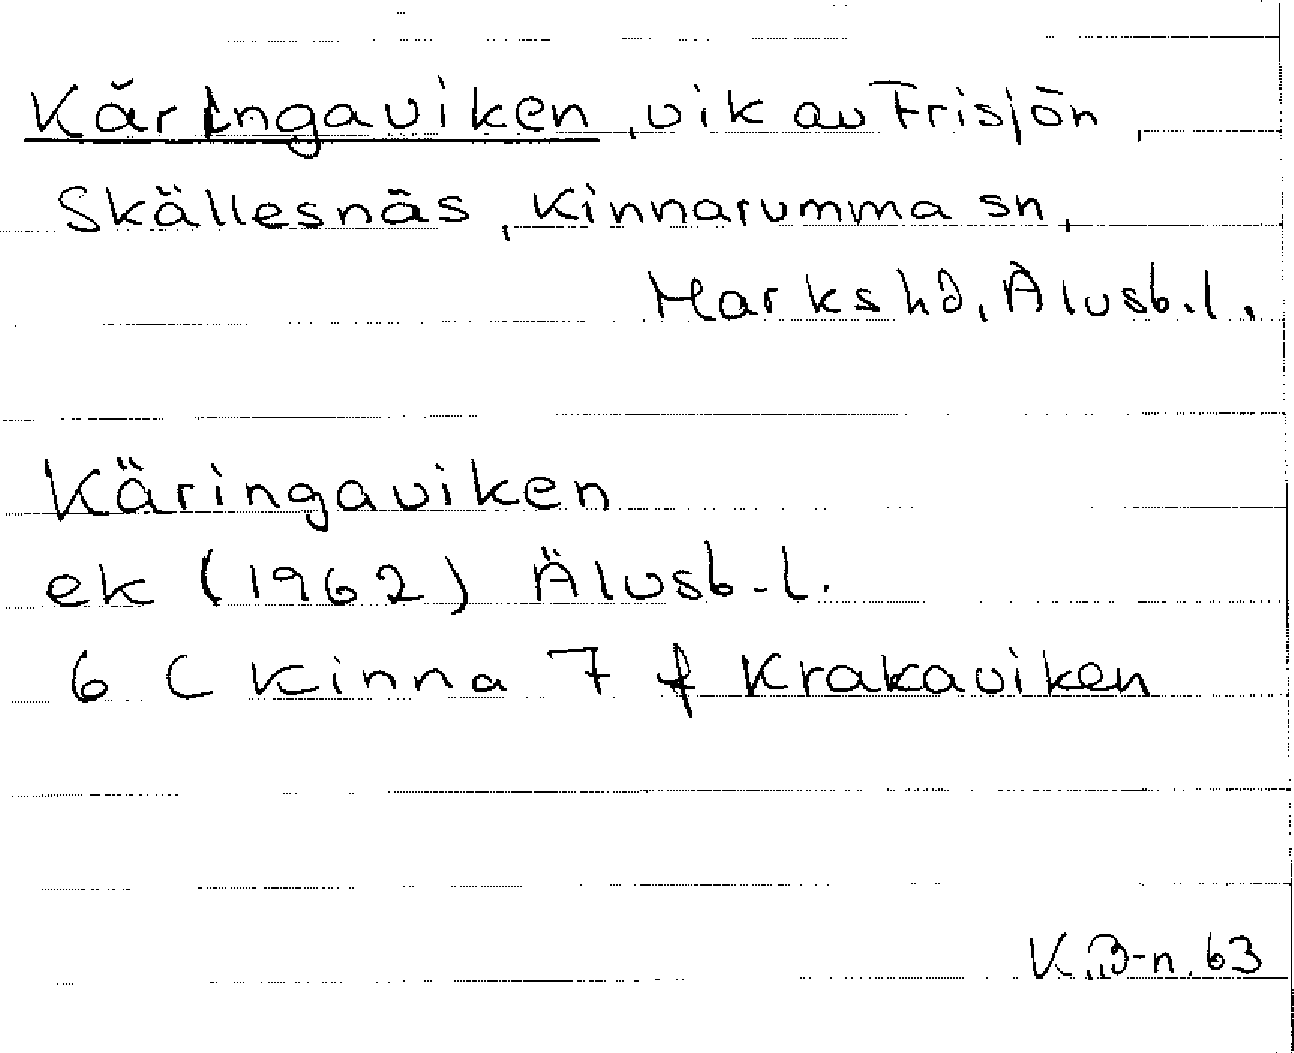 Käringaviken, vik av Frisjön,
Skällesnäs, Kinnarumma sn,
Marks hd, Älvsb.l.
Käringaviken
ek (1962) Älvsb.l.
6 C Kinna 7 f Krakaviken
K.B-n. 63